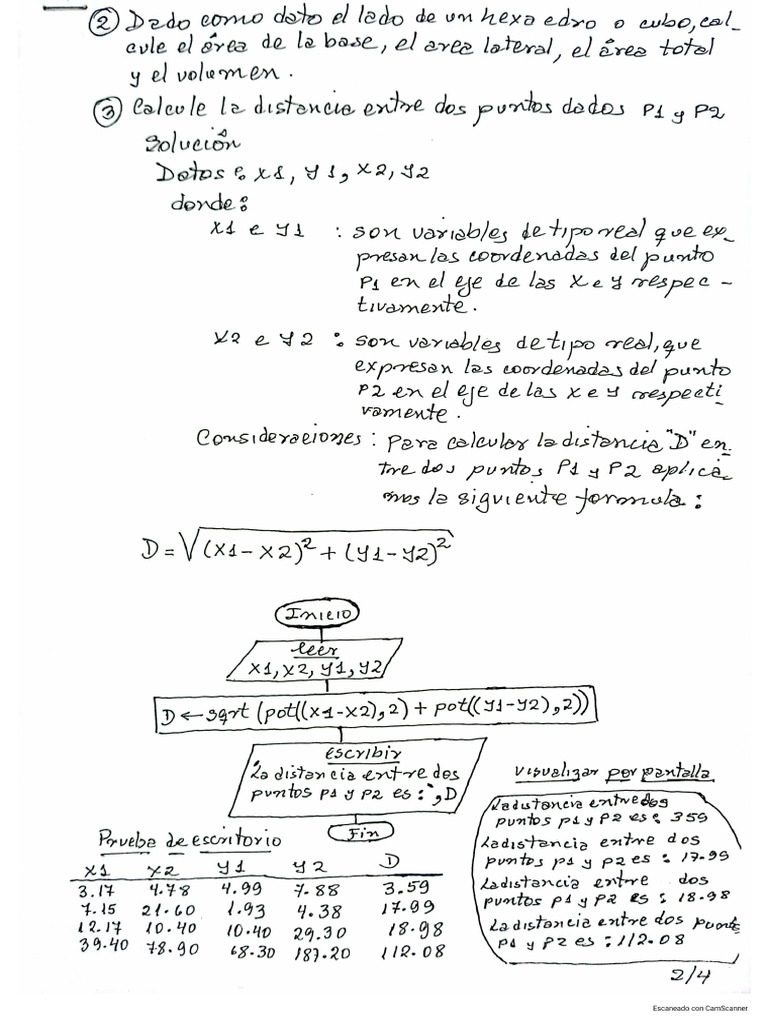 ② Dado como dato el lado de un hexaedro o cubo, cal-
cule el área de la base, el area lateral, el área total
y el volumen.
③ Calcule la distancia entre dos puntos dados P1 y P2
Solución
Datos: X1, Y1, X2, Y2
donde:
X1 e Y1 : son variables de tipo real que ex-
presan las coordenadas del punto
P1 en el eje de las X e Y respec-
tivamente.
X2 e Y2 : son variables de tipo real, que
expresan las coordenadas del punto
P2 en el eje de las X e Y respecti-
vamente.
Consideraciones: para calcular la distancia "D" en-
tre dos puntos P1 y P2 aplica-
mos la siguiente formula:
D = √(X1-X2)² + (Y1-Y2)²
Inicio
leer
X1, X2, Y1, Y2
D ← sqrt (pot((X1-X2),2) + pot((Y1-Y2),2))
escribir
'La distancia entre dos
puntos P1 y P2 es:', D
Fin
Visualizar por pantalla
La distancia entre dos
puntos p1 y p2 es: 359
La distancia entre dos
puntos p1 y p2 es: 17.99
La distancia entre dos
puntos p1 y p2 es: 18.98
La distancia entre dos punts
p1 y p2 es: 112.08
Prueba de escritorio
X1 X2 Y1 Y2 D
3.17 4.78 4.99 7.88 3.59
7.15 21.60 1.93 4.38 17.99
12.17 10.40 10.40 29.30 18.98
39.40 78.90 68.30 187.20 112.08
2/4
Escaneado con CamScanner